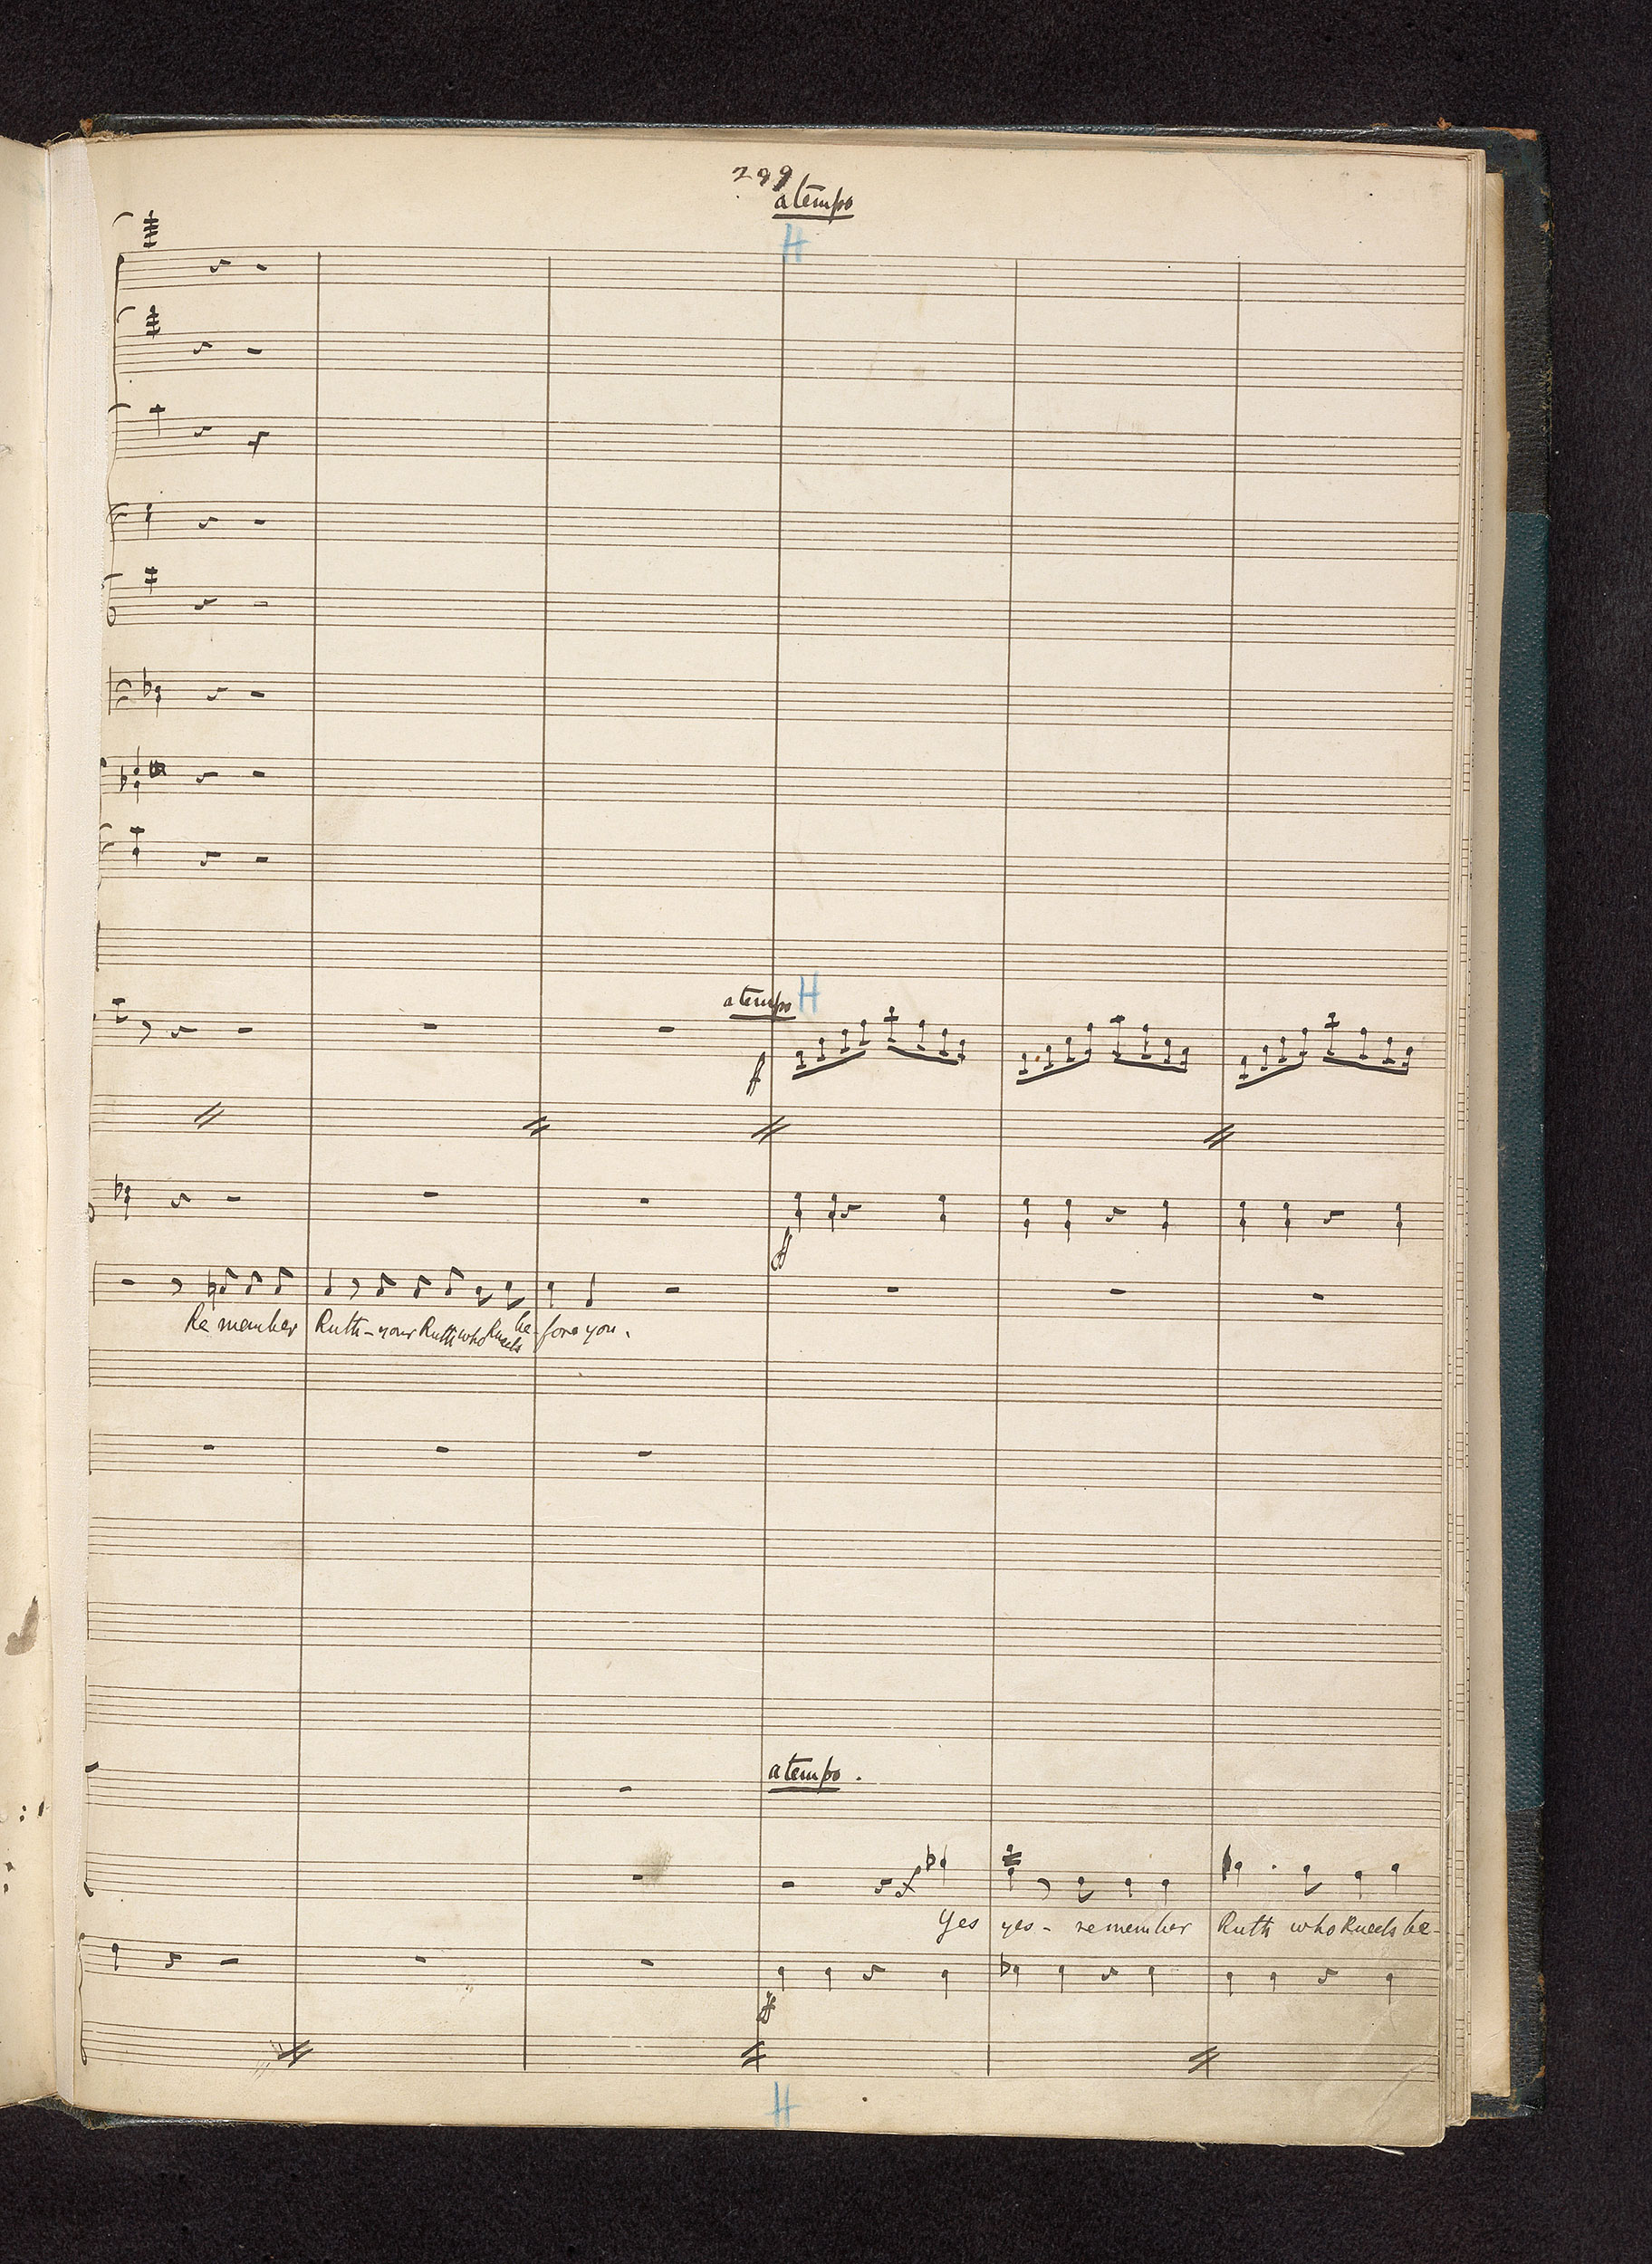 299
a tempo
H
a tempo H
f
ff
Remember Ruth - your Ruth who kneels be - fore you.
a tempo.
f
Yes yes - remember Ruth who kneels be -
ff
H